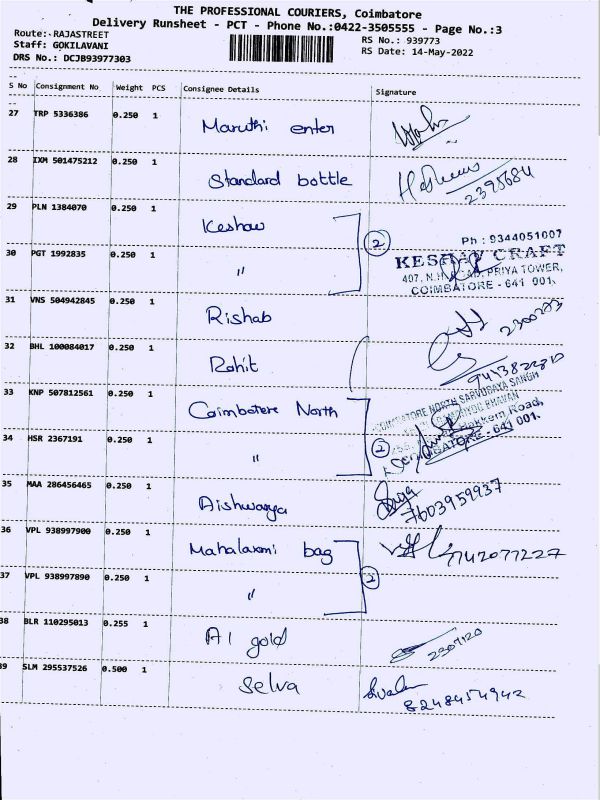 THE PROFESSIONAL COURIERS, Coimbatore
Delivery Runsheet - PCT - Phone No.:0422-3505555 - Page No.:3
Route:-RAJASTREET RS No.: 939773
Staff: GOKILAVANI RS Date: 14-May-2022
DRS No.: DCJB93977303
S No Consignment No Weight PCS Consignee Details Signature
27 TRP 5336386 0.250 1 Maruthi enter
28 IXM 501475212 0.250 1 Standard bottle 2395684
29 PLN 1384070 0.250 1 Keshav
2 Ph : 9344051007
KESHAV CRAFT
30 PGT 1992835 0.250 1 "
PRIYA TOWER,
COIMBATORE - 641 001.
31 VNS 504942845 0.250 1 Rishab
32 BHL 100084017 0.250 1 Rohit
33 KNP 507812561 0.250 1 Coimbotere North
COIMBATORE NORTH SARVODAYA SANGH
34 HSR 2367191 0.250 1 " 2
641 001.
35 MAA 286456465 0.250 1 Aishwarya 7603959937
36 VPL 938997900 0.250 1 Mahalaxmi bag
37 VPL 938997890 0.250 1 " 2
38 BLR 110295013 0.255 1 A1 gold
39 SLM 295537526 0.500 1 Selva
8248454942